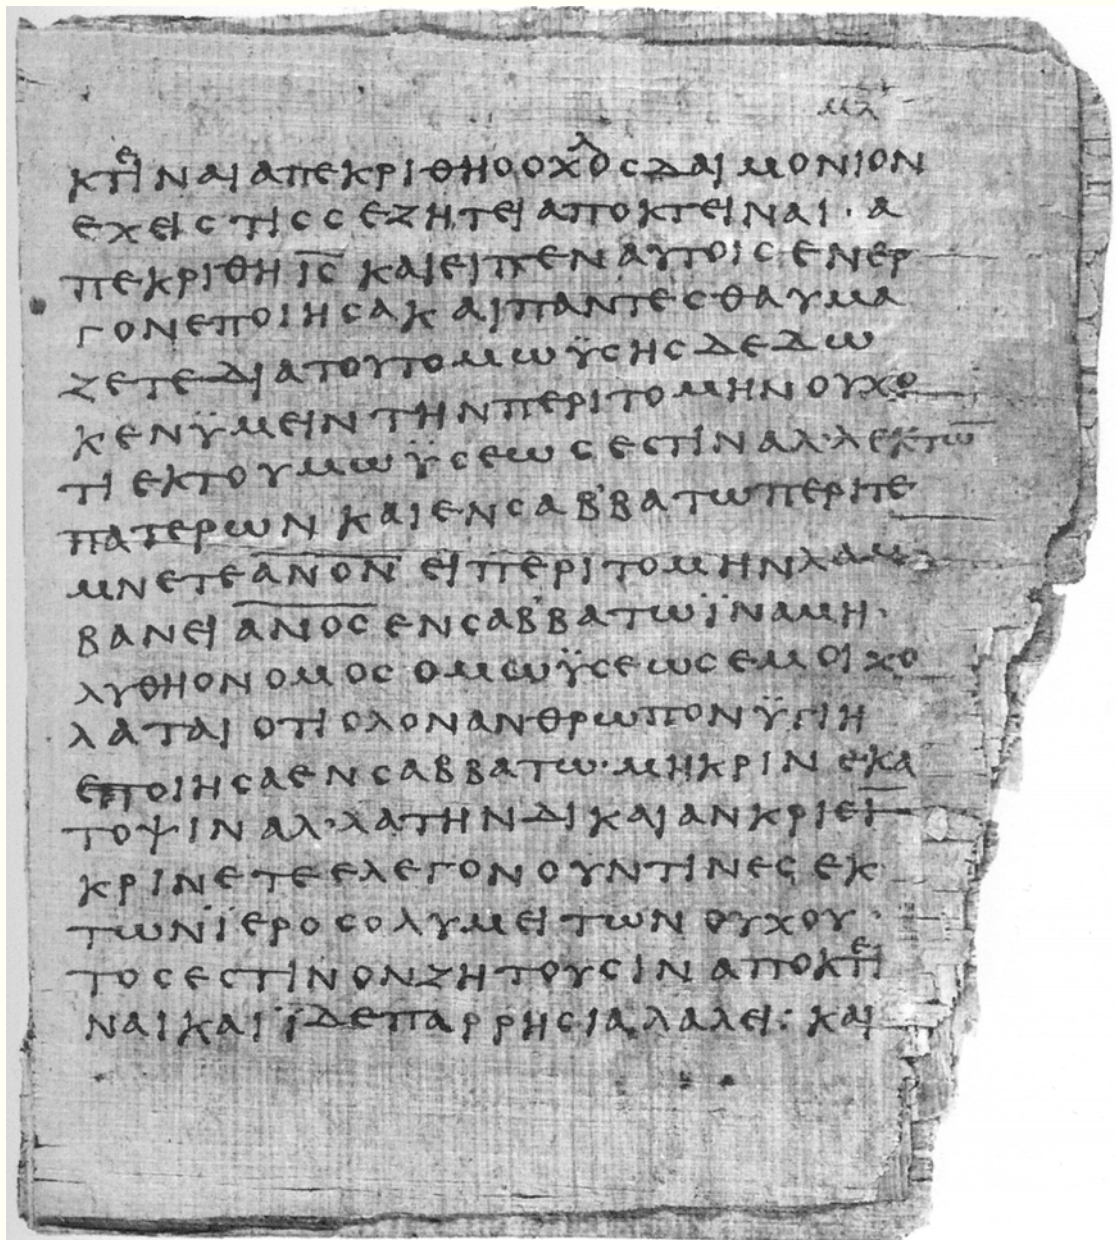 ΚΤΕΙΝΑΙΑΠΕΚΡΙΘΗΟΟΧΛΟϹΔΑΙΜΟΝΙΟΝ
ΕΧΕΙϹΤΙϹϹΕΖΗΤΕΙΑΠΟΚΤΕΙΝΑΙ·Α
ΠΕΚΡΙΘΗΙ̅Ϲ̅ΚΑΙΕΙΠΕΝΑΥΤΟΙϹΕΝΕΡ
ΓΟΝΕΠΟΙΗϹΑΚΑΙΠΑΝΤΕϹΘΑΥΜΑ
ΖΕΤΕΔΙΑΤΟΥΤΟΜΩΫϹΗϹΔΕΔΩ
ΚΕΝΫΜΕΙΝΤΗΝΠΕΡΙΤΟΜΗΝΟΥΧΟ
ΤΙΕΚΤΟΥΜΩΫϹΕΩϹΕϹΤΙΝΑΛ'ΛΕΚΤΩ̅
ΠΑΤΕΡΩΝΚΑΙΕΝϹΑΒ'ΒΑΤΩΠΕΡΙΤΕ
ΜΝΕΤΕΑ̅Ν̅Ο̅Ν̅ΕΙΠΕΡΙΤΟΜΗΝΛΑΜ
ΒΑΝΕΙΑ̅Ν̅Ο̅Ϲ̅ΕΝϹΑΒ'ΒΑΤΩΪΝΑΜΗ·
ΛΥΘΗΟΝΟΜΟϹΟΜΩΫϹΕΩϹΕΜΟΙΧΟ
ΛΑΤΑΙΟΤΙΟΛΟΝΑΝΘΡΩΠΟΝΫΓΙΗ
ΕΠΟΙΗϹΑΕΝϹΑΒΒΑΤΩ·ΜΗΚΡΙΝΕΚΑ
ΤΟΨΙΝΑΛ'ΛΑΤΗΝΔΙΚΑΙΑΝΚΡΙϹΙ̅
ΚΡΙΝΕΤΕΕΛΕΓΟΝΟΥΝΤΙΝΕϹΕΚ
ΤΩΝΪΕΡΟϹΟΛΥΜΕΙΤΩΝΟΥΧΟΥ·
ΤΟϹΕϹΤΙΝΟΝΖΗΤΟΥϹΙΝΑΠΟΚΤΕΙ
ΝΑΙΚΑΙΪΔΕΠΑΡΡΗϹΙΑΛΑΛΕΙ:ΚΑΙ